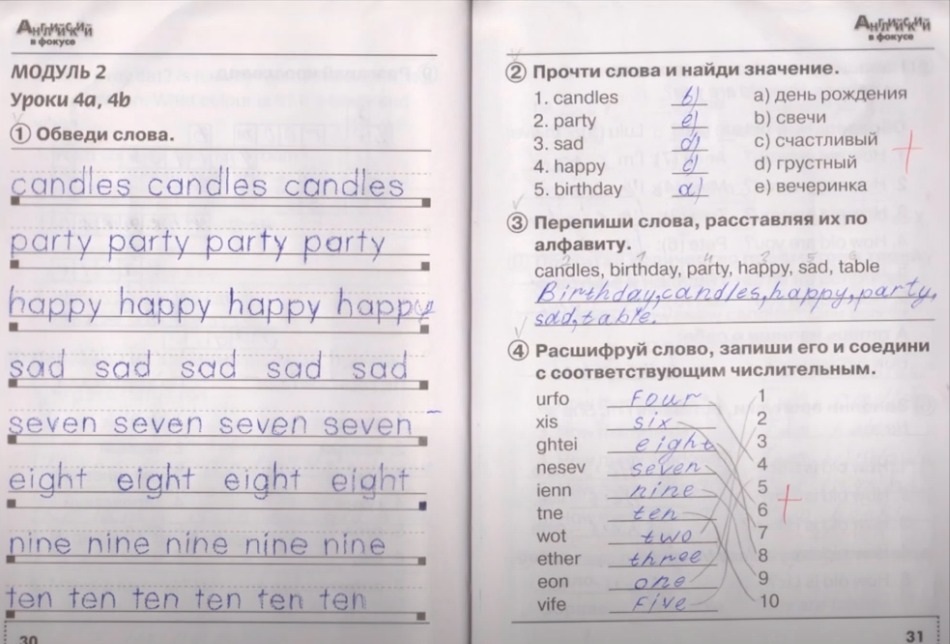 Английский
в фокусе
МОДУЛЬ 2
Уроки 4a, 4b
1 Обведи слова.
candles candles candles
party party party party
happy happy happy happy
sad sad sad sad sad
seven seven seven seven
eight eight eight eight
nine nine nine nine nine
ten ten ten ten ten ten
30
Английский
в фокусе
2 Прочти слова и найди значение.
1. candles b) a) день рождения
2. party e) b) свечи
3. sad d) c) счастливый
4. happy c) d) грустный
5. birthday a) e) вечеринка
3 Перепиши слова, расставляя их по
алфавиту.
candles, birthday, party, happy, sad, table
Birthday, candles, happy, party,
sad, table.
4 Расшифруй слово, запиши его и соедини
с соответствующим числительным.
urfo four 1
xis six 2
ghtei eight 3
nesev seven 4
ienn nine 5
tne ten 6
wot two 7
ether three 8
eon one 9
vife five 10
31